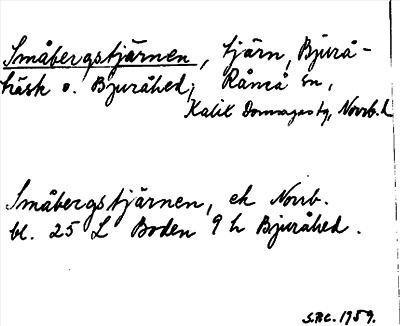 Småbergstjärnen, tjärn, Bjurå-
träsk o. Bjuråhed, Råneå sn,
Kalix Domsagas tg, Norrb. l.
Småbergstjärnen, ek Norrb.
bl. 25 L Boden 9 h Bjuråhed.
1959.